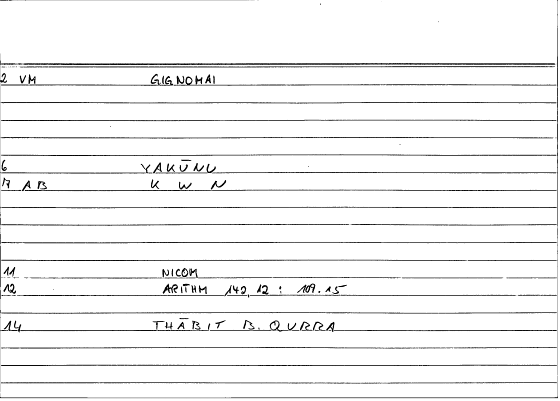 2 VM GIGNOMAI
6 YAKŪNU
7 AB K W N
11 NICOM
12 ARITHM 142,12 : 109.15
14 THĀBIT B. QURRA